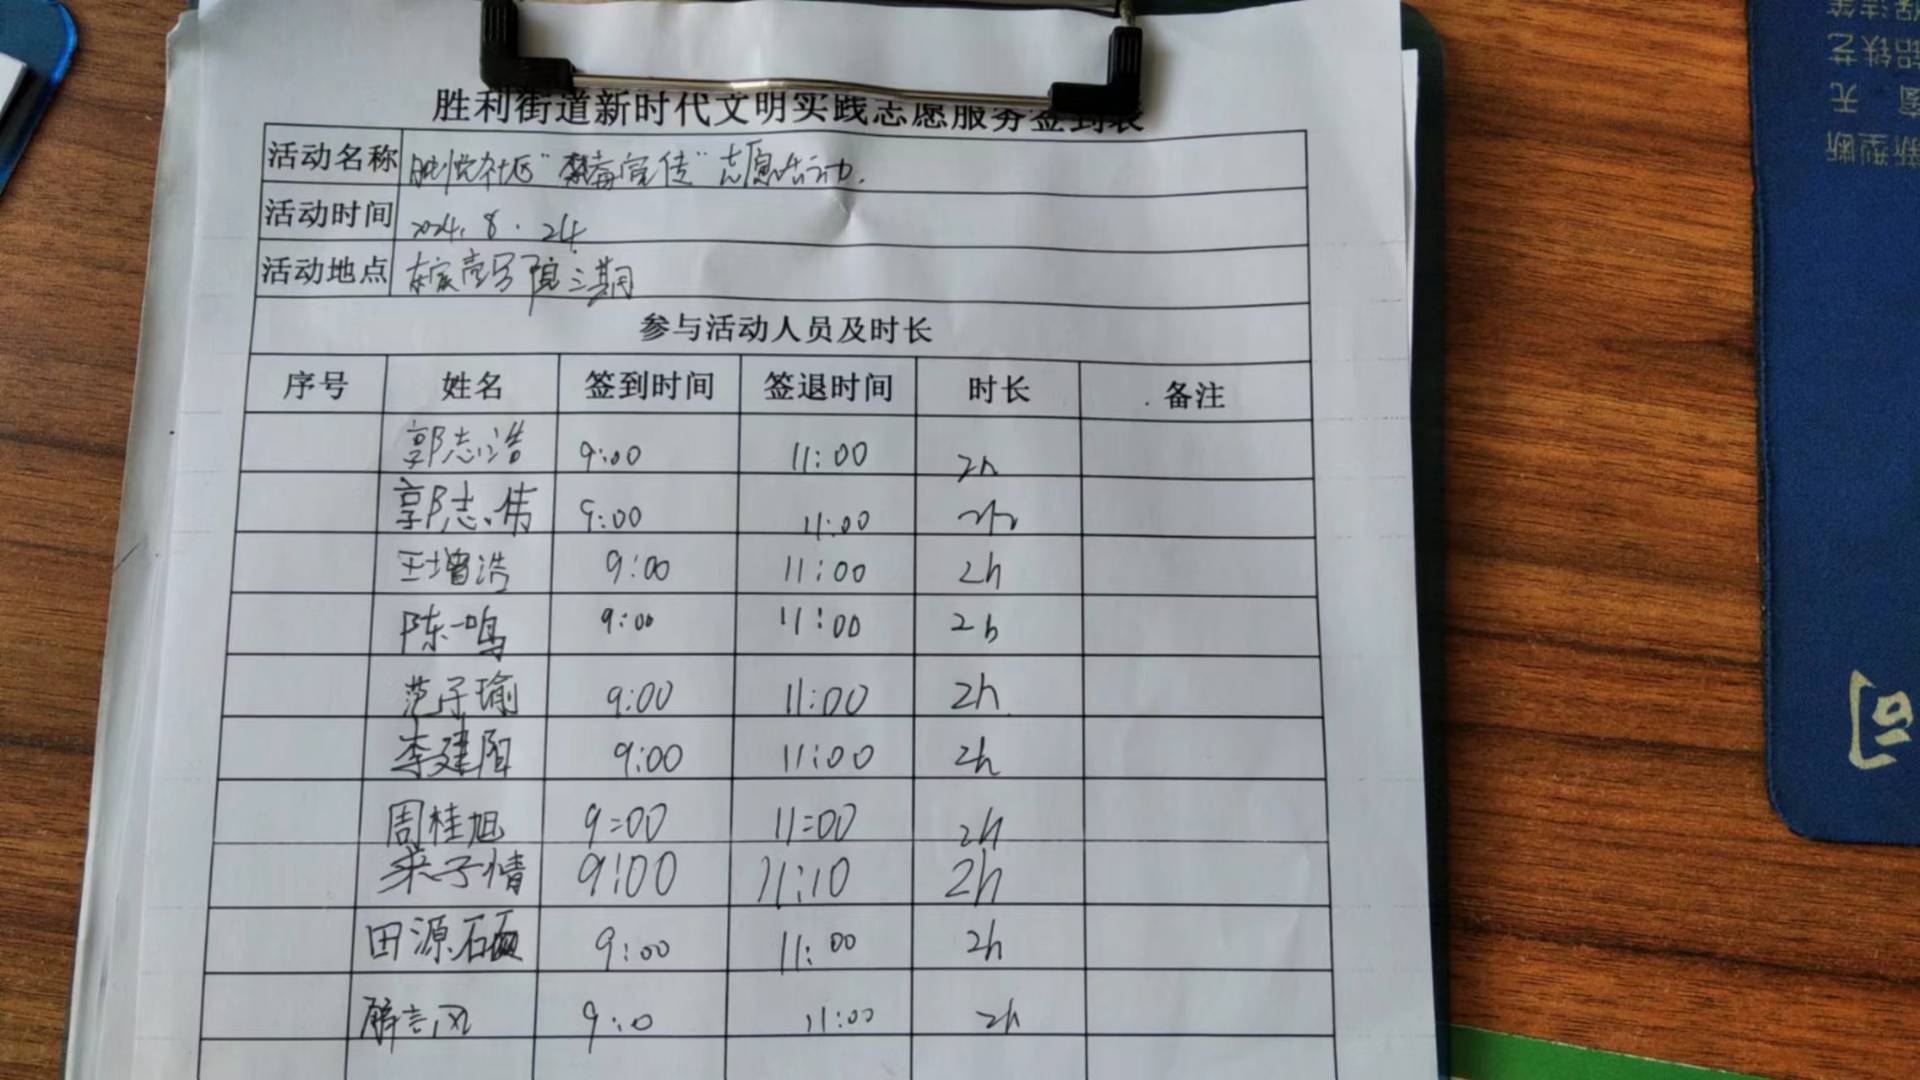 胜利街道新时代文明实践志愿服务签到表
活动名称 社区“禁毒宣传”志愿活动.
活动时间 2024.8.24.
活动地点 壹号院三期
参与活动人员及时长
序号 姓名 签到时间 签退时间 时长 备注
郭志浩 9:00 11:00 2h
郭志伟 9:00 11:00 2h
王增浩 9:00 11:00 2h
陈一鸣 9:00 11:00 2h
范子瑜 9:00 11:00 2h
李建阳 9:00 11:00 2h
周桂旭 9:00 11:00 2h
子情 9:00 11:10 2h
田源 9:00 11:00 2h
解志风 9:0 11:00 2h
新型断
窗 无
铝铁艺
保洁等